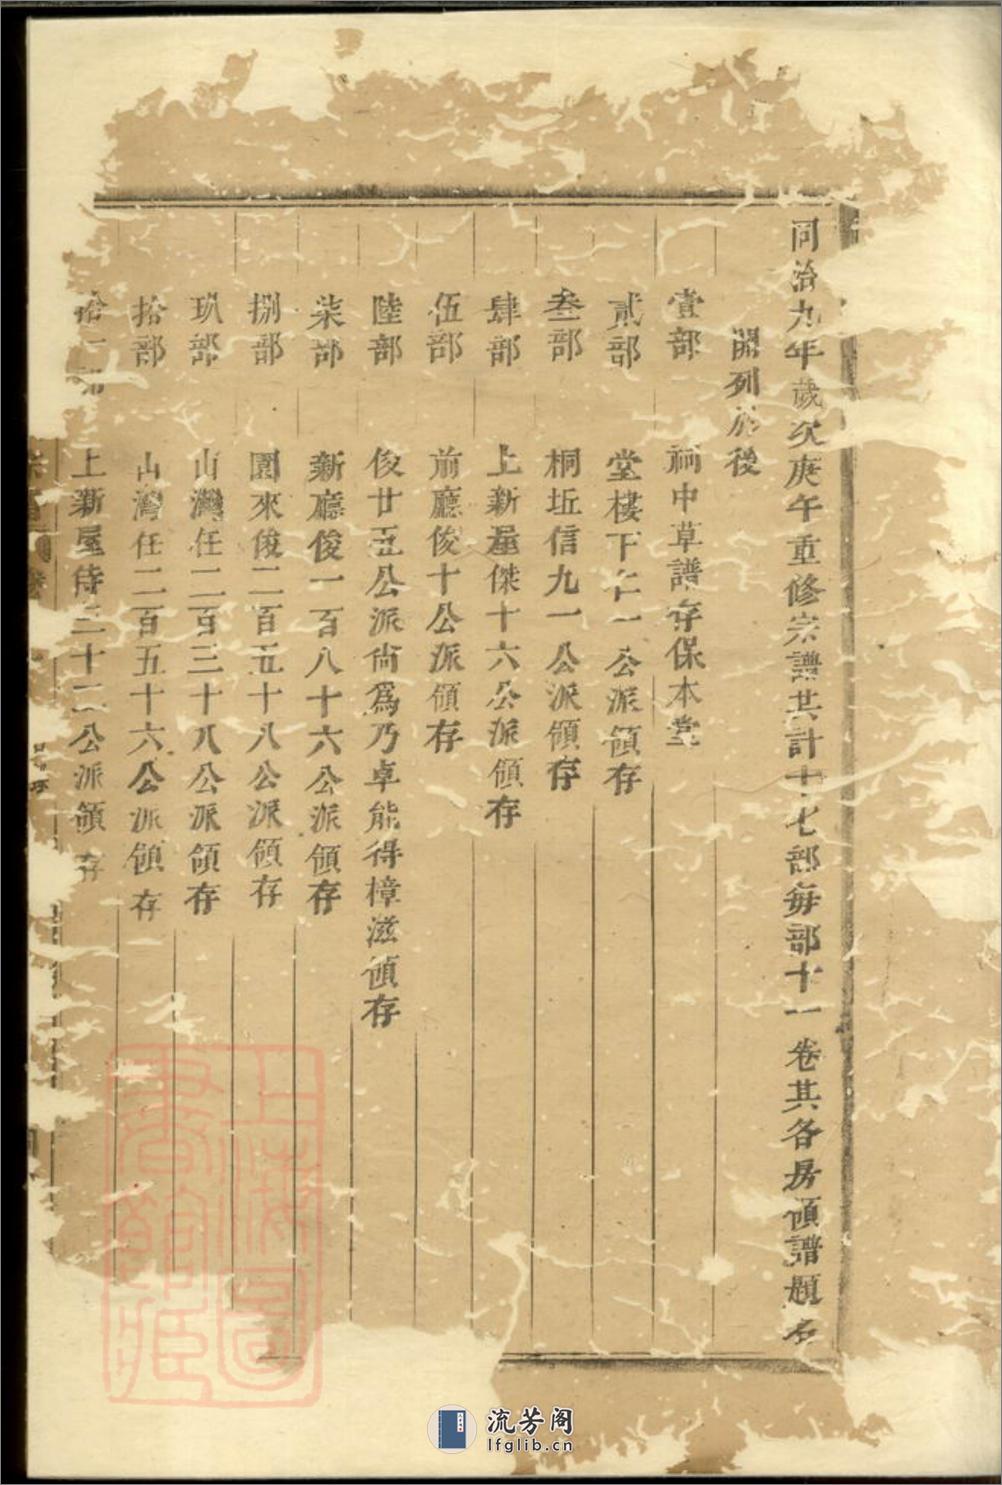 同治九年歲次庚午重修宗譜共計十七部每部十一卷其各房領譜題名
開列於後
壹部 祠中草譜存保本堂
貳部 堂樓下仁一公派領存
叁部 桐坵信九一公派領存
肆部 上新屋傑十六公派領存
伍部 前廳俊十公派領存
陸部 俊廿五公派尙爲乃卓能得樟滋領存
柒部 新廳俊一百八十六公派領存
捌部 園來俊二百五十八公派領存
玖部 山灣任二百三十八公派領存
拾部 山灣任二百五十六公派領存
拾一部 上新屋侍三十二公派領存
上海圖書館藏
流芳阁
lfglib.cn